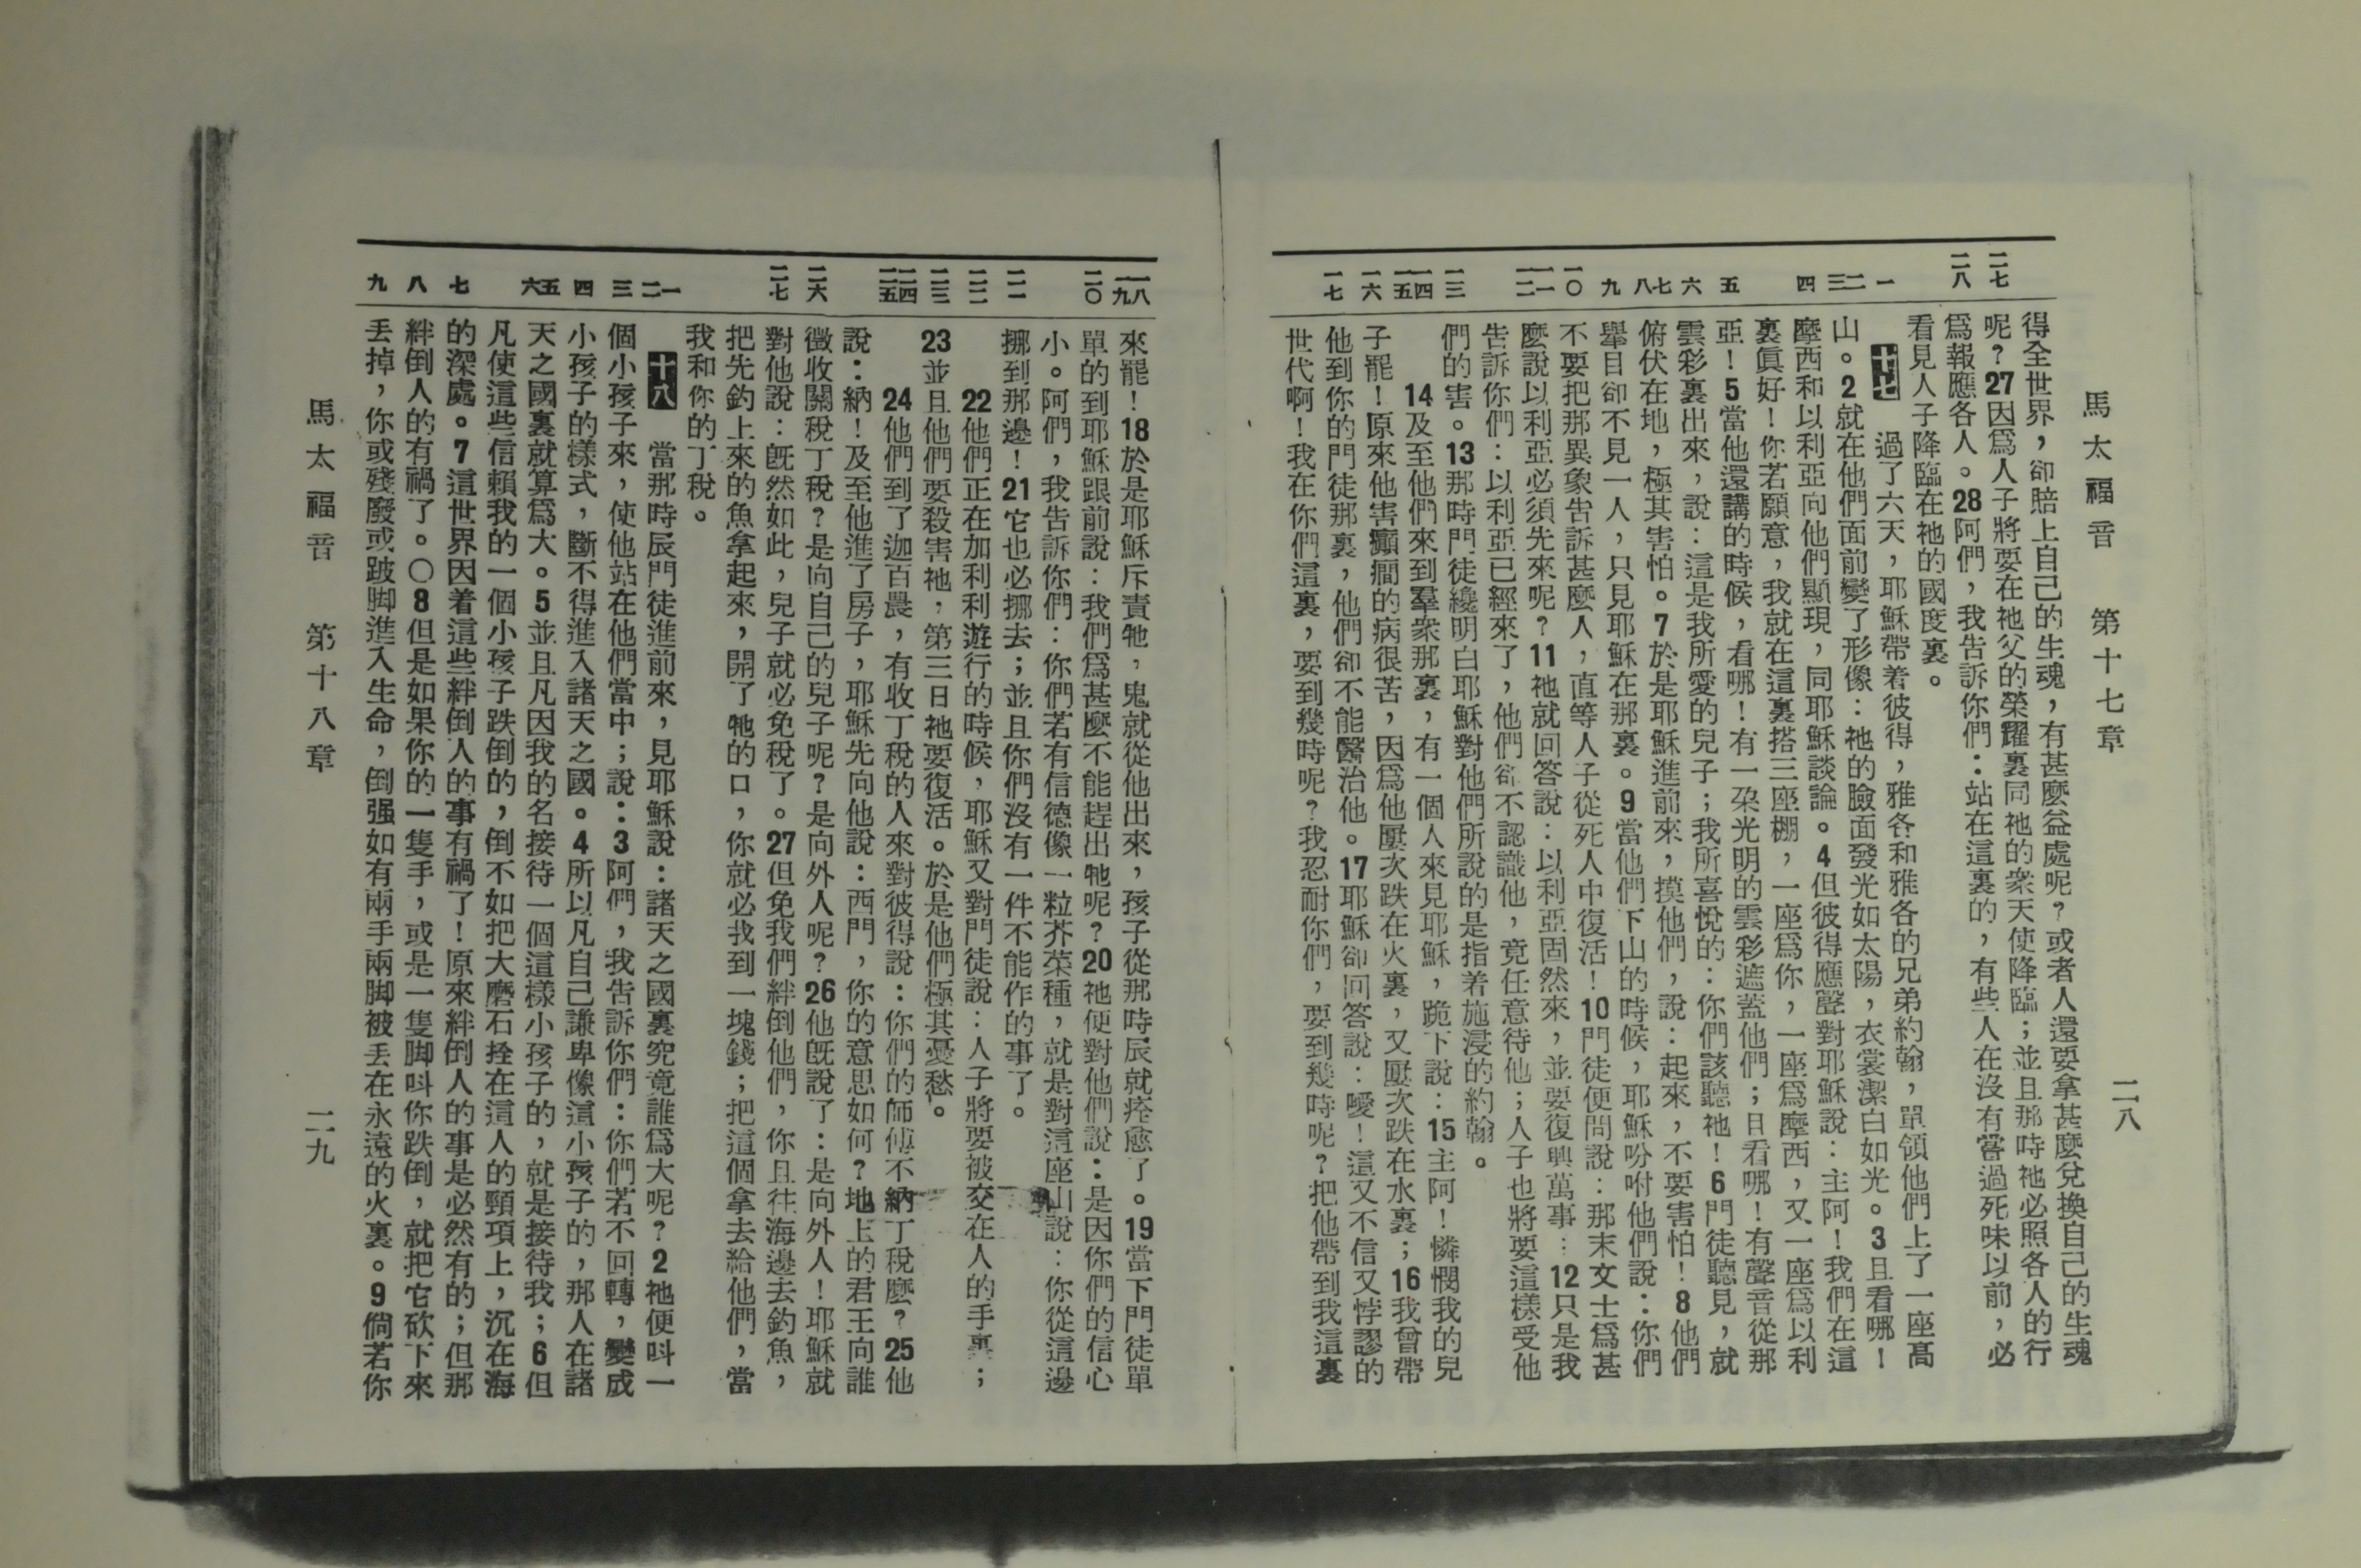 馬太福音 第十七章 二八
二七
二八
一
二
三
四
五
六
七
八
九
一〇
一一
一二
一三
一四
一五
一六
一七
得全世界，卻賠上自己的生魂，有甚麼益處呢？或者人還要拿甚麼兌換自己的生魂
呢？27因爲人子將要在祂父的榮耀裏同祂的衆天使降臨；並且那時祂必照各人的行
爲報應各人。28阿們，我告訴你們：站在這裏的，有些人在沒有嘗過死味以前，必
看見人子降臨在祂的國度裏。
十七 過了六天，耶穌帶着彼得，雅各和雅各的兄弟約翰，單領他們上了一座高
山。2就在他們面前變了形像：祂的臉面發光如太陽，衣裳潔白如光。3且看哪！
摩西和以利亞向他們顯現，同耶穌談論。4但彼得應聲對耶穌說：主阿！我們在這
裏眞好！你若願意，我就在這裏搭三座棚，一座爲你，一座爲摩西，又一座爲以利
亞！5當他還講的時候，看哪！有一朶光明的雲彩遮蓋他們；且看哪！有聲音從那
雲彩裏出來，說：這是我所愛的兒子；我所喜悅的：你們該聽祂！6門徒聽見，就
俯伏在地，極其害怕。7於是耶穌進前來，摸他們，說：起來，不要害怕！8他們
舉目卻不見一人，只見耶穌在那裏。9當他們下山的時候，耶穌吩咐他們說：你們
不要把那異象告訴甚麼人，直等人子從死人中復活！10門徒便問說：那末文士爲甚
麼說以利亞必須先來呢？11祂就回答說：以利亞固然來，並要復興萬事：12只是我
告訴你們：以利亞已經來了，他們卻不認識他，竟任意待他；人子也將要這樣受他
們的害。13那時門徒纔明白耶穌對他們所說的是指着施浸的約翰。
14及至他們來到羣衆那裏，有一個人來見耶穌，跪下說：15主阿！憐憫我的兒
子罷！原來他害癲癎的病很苦，因爲他屢次跌在火裏，又屢次跌在水裏；16我曾帶
他到你的門徒那裏，他們卻不能醫治他。17耶穌卻回答說：噯！這又不信又悖謬的
世代啊！我在你們這裏，要到幾時呢？我忍耐你們，要到幾時呢？把他帶到我這裏
一八
一九
二〇
二一
二二
二三
二四
二五
二六
二七
一
二
三
四
五
六
七
八
九
來罷！18於是耶穌斥責牠，鬼就從他出來，孩子從那時辰就痊愈了。19當下門徒單
單的到耶穌跟前說：我們爲甚麼不能趕出牠呢？20祂便對他們說：是因你們的信心
小。阿們，我告訴你們：你們若有信德像一粒芥菜種，就是對這座山說：你從這邊
挪到那邊！21它也必挪去；並且你們沒有一件不能作的事了。
22他們正在加利利遊行的時候，耶穌又對門徒說：人子將要被交在人的手裏；
23並且他們要殺害祂，第三日祂要復活。於是他們極其憂愁。
24他們到了迦百農，有收丁稅的人來對彼得說：你們的師傅不納丁稅麼？25他
說：納！及至他進了房子，耶穌先向他說：西門，你的意思如何？地上的君王向誰
徵收關稅丁稅？是向自己的兒子呢？是向外人呢？26他旣說了：是向外人！耶穌就
對他說：旣然如此，兒子就必免稅了。27但免我們絆倒他們，你且往海邊去釣魚，
把先釣上來的魚拿起來，開了牠的口，你就必找到一塊錢；把這個拿去給他們，當
我和你的丁稅。
十八 當那時辰門徒進前來，見耶穌說：諸天之國裏究竟誰爲大呢？2祂便呌一
個小孩子來，使他站在他們當中；說：3阿們，我告訴你們：你們若不回轉，變成
小孩子的樣式，斷不得進入諸天之國。4所以凡自己謙卑像這小孩子的，那人在諸
天之國裏就算爲大。5並且凡因我的名接待一個這樣小孩子的，就是接待我；6但
凡使這些信賴我的一個小孩子跌倒的，倒不如把大磨石拴在這人的頸項上，沉在海
的深處。7這世界因着這些絆倒人的事有禍了！原來絆倒人的事是必然有的；但那
絆倒人的有禍了。〇8但是如果你的一隻手，或是一隻脚呌你跌倒，就把它砍下來
丢掉，你或殘廢或跛脚進入生命，倒强如有兩手兩脚被丢在永遠的火裏。9倘若你
馬太福音 第十八章 二九